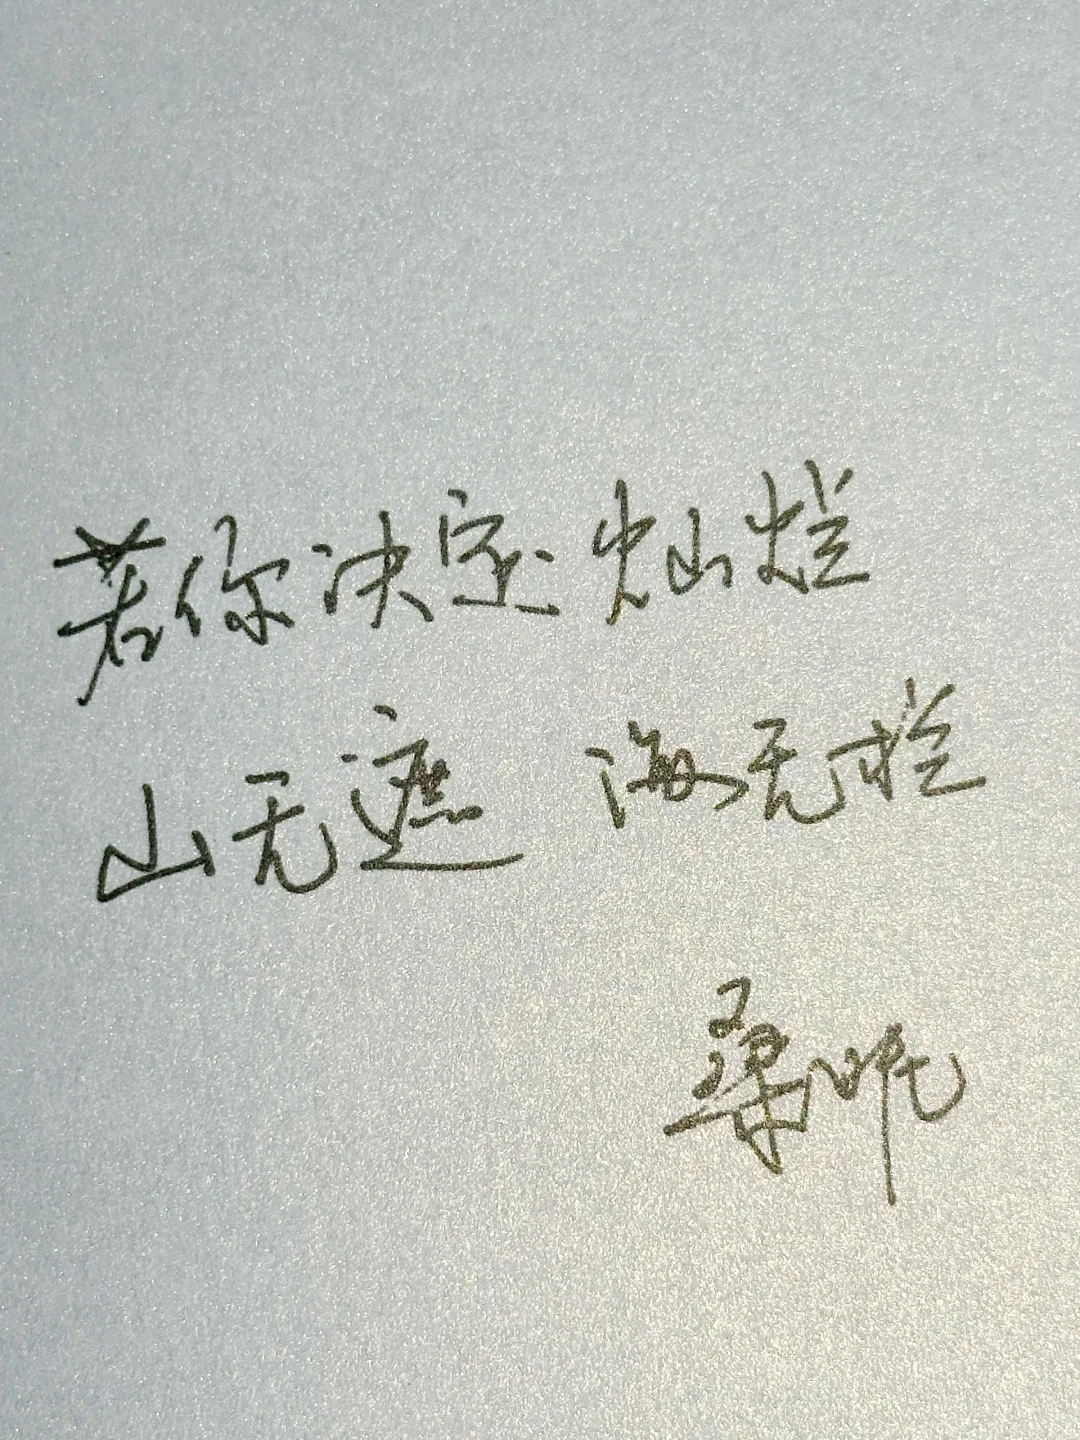 若你决定灿烂
山无遮 海无拦